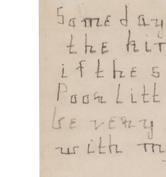 Someday
the kin
if the s
Poor Litt
be very
with m